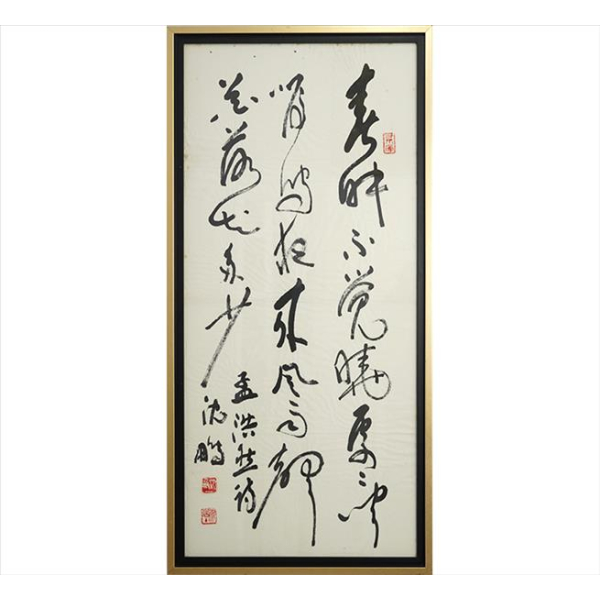 春眠不觉晓处处闻
啼鸟夜来风雨声
花落知多少
孟浩然诗
沈鹏